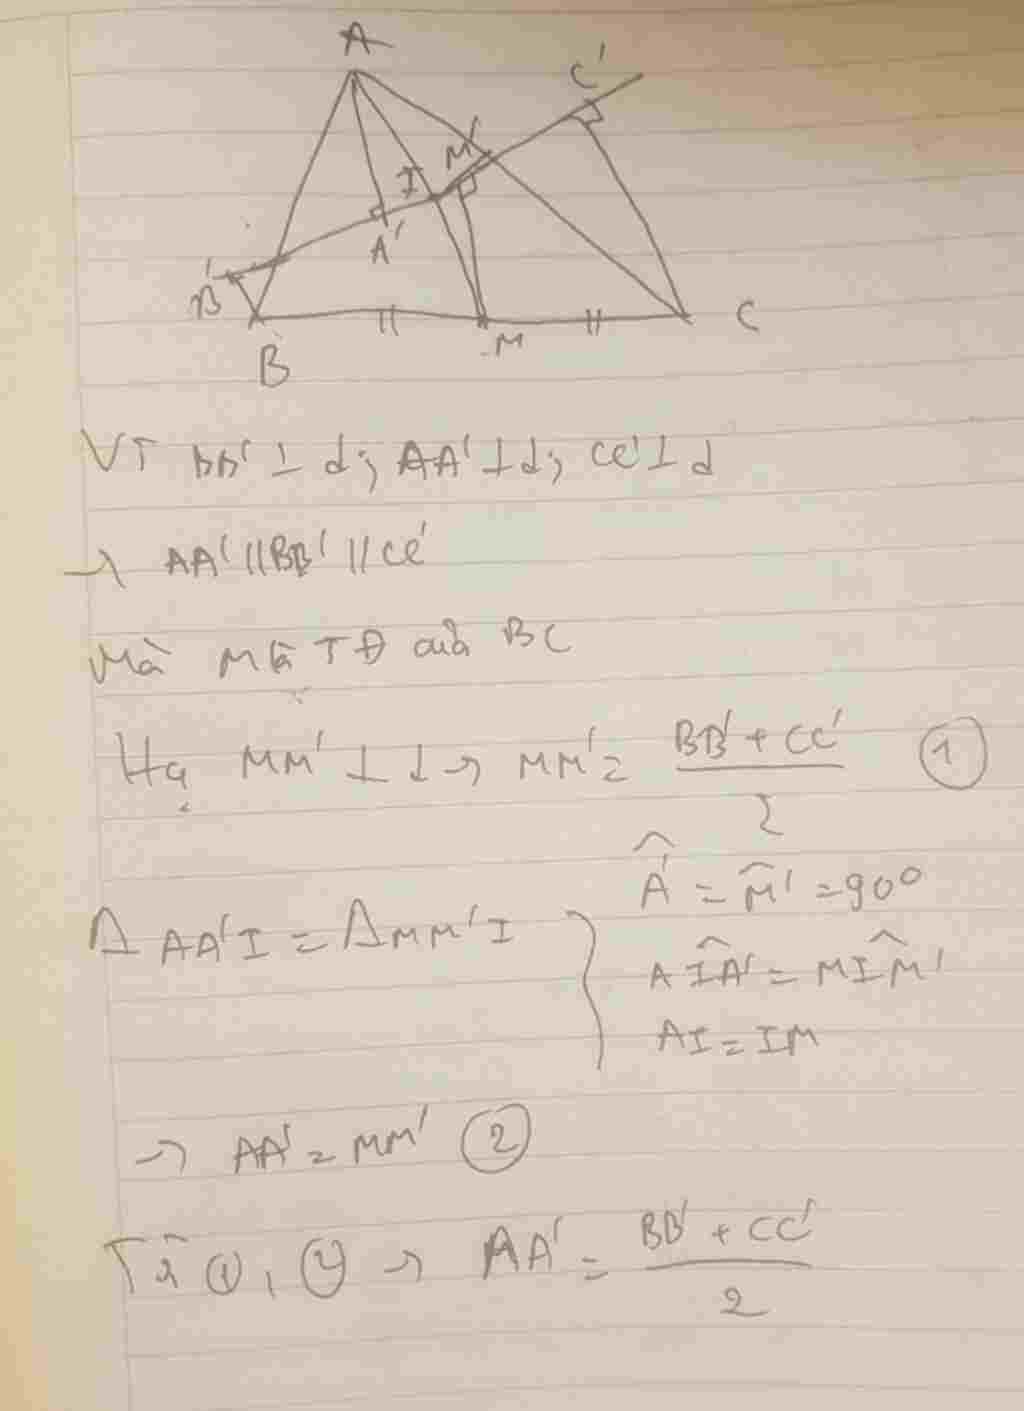 A
C'
M'
I
A'
B'
B
M
C
Vì BB' ⊥ d; AA' ⊥ d; CC' ⊥ d
→ AA' // BB' // CC'
Mà M là TĐ của BC
Hạ MM' ⊥ d → MM' = (BB' + CC')/2 ①
Δ AA'I = Δ MM'I } Â' = M̂' = 90°
AÎA' = MÎM'
AI = IM
→ AA' = MM' ②
Từ ①, ② → AA' = (BB' + CC')/2